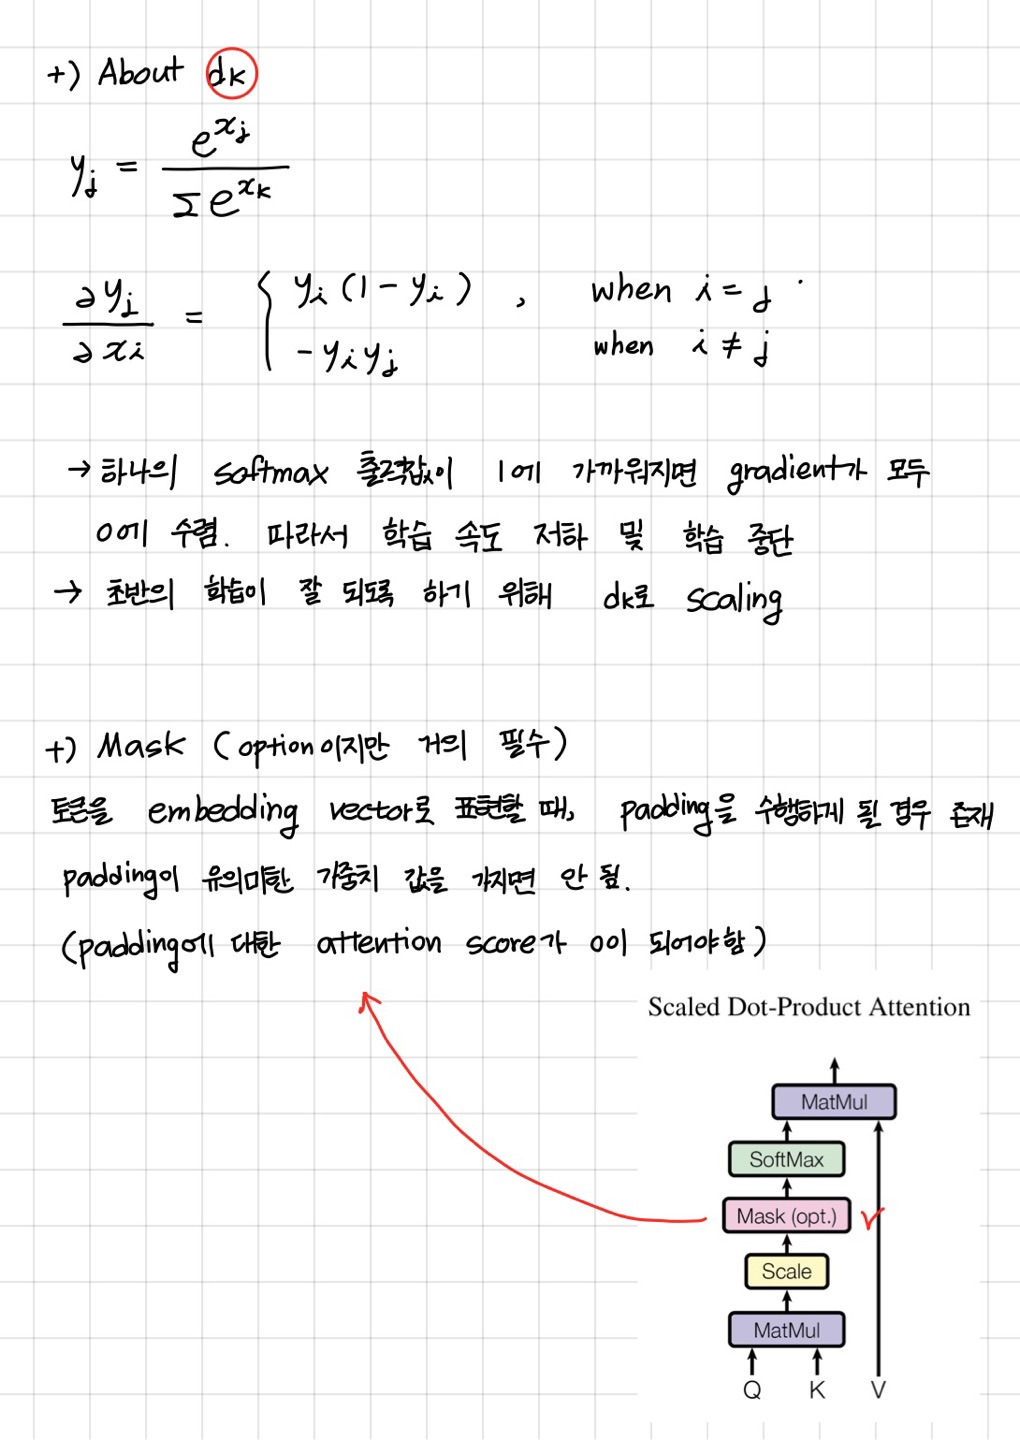 +) About dk
yj = e^xj / Σ e^xk
∂yj / ∂xi = { yi (1 - yi) , when i = j
- yi yj when i ≠ j
→ 하나의 softmax 출력값이 1에 가까워지면 gradient가 모두
0에 수렴. 따라서 학습 속도 저하 및 학습 중단
→ 초반의 학습이 잘 되도록 하기 위해 dk로 scaling
+) Mask (option이지만 거의 필수)
토큰을 embedding vector로 표현할 때, padding을 수행하게 될 경우 존재
padding이 유의미한 가중치 값을 가지면 안 됨.
(padding에 대한 attention score가 0이 되어야 함)
Scaled Dot-Product Attention
MatMul
SoftMax
Mask (opt.)
Scale
MatMul
Q K V